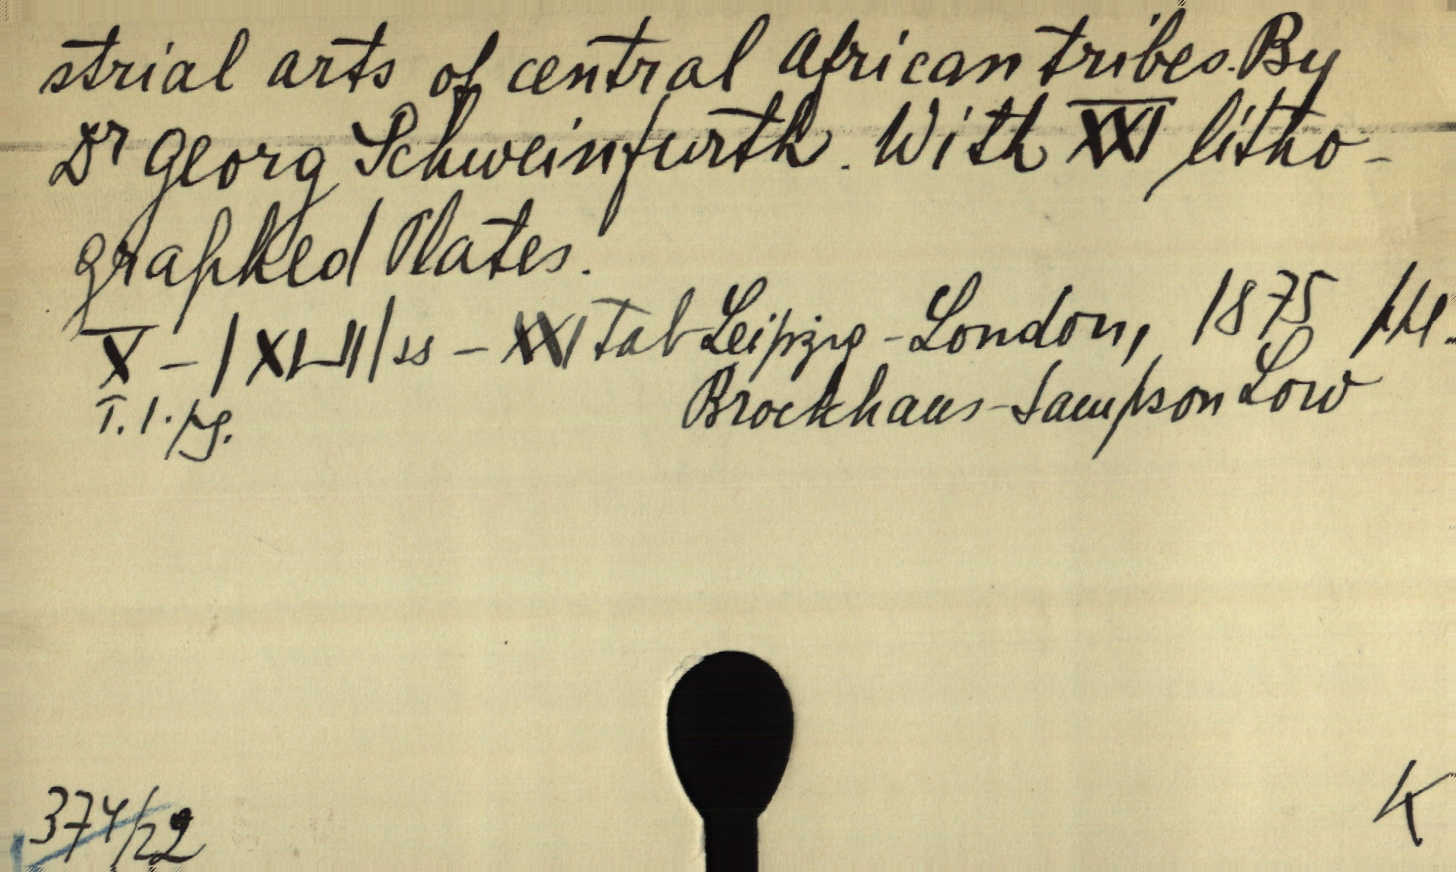 strial arts of central African tribes. By
Dr Georg Schweinfurth. With XXI litho-
graphed Plates.
X - | XLII | ss - XXI tab Leipzig - London, 1875
T. 1. pg. Brockhaus - Sampson Low
374/22 K